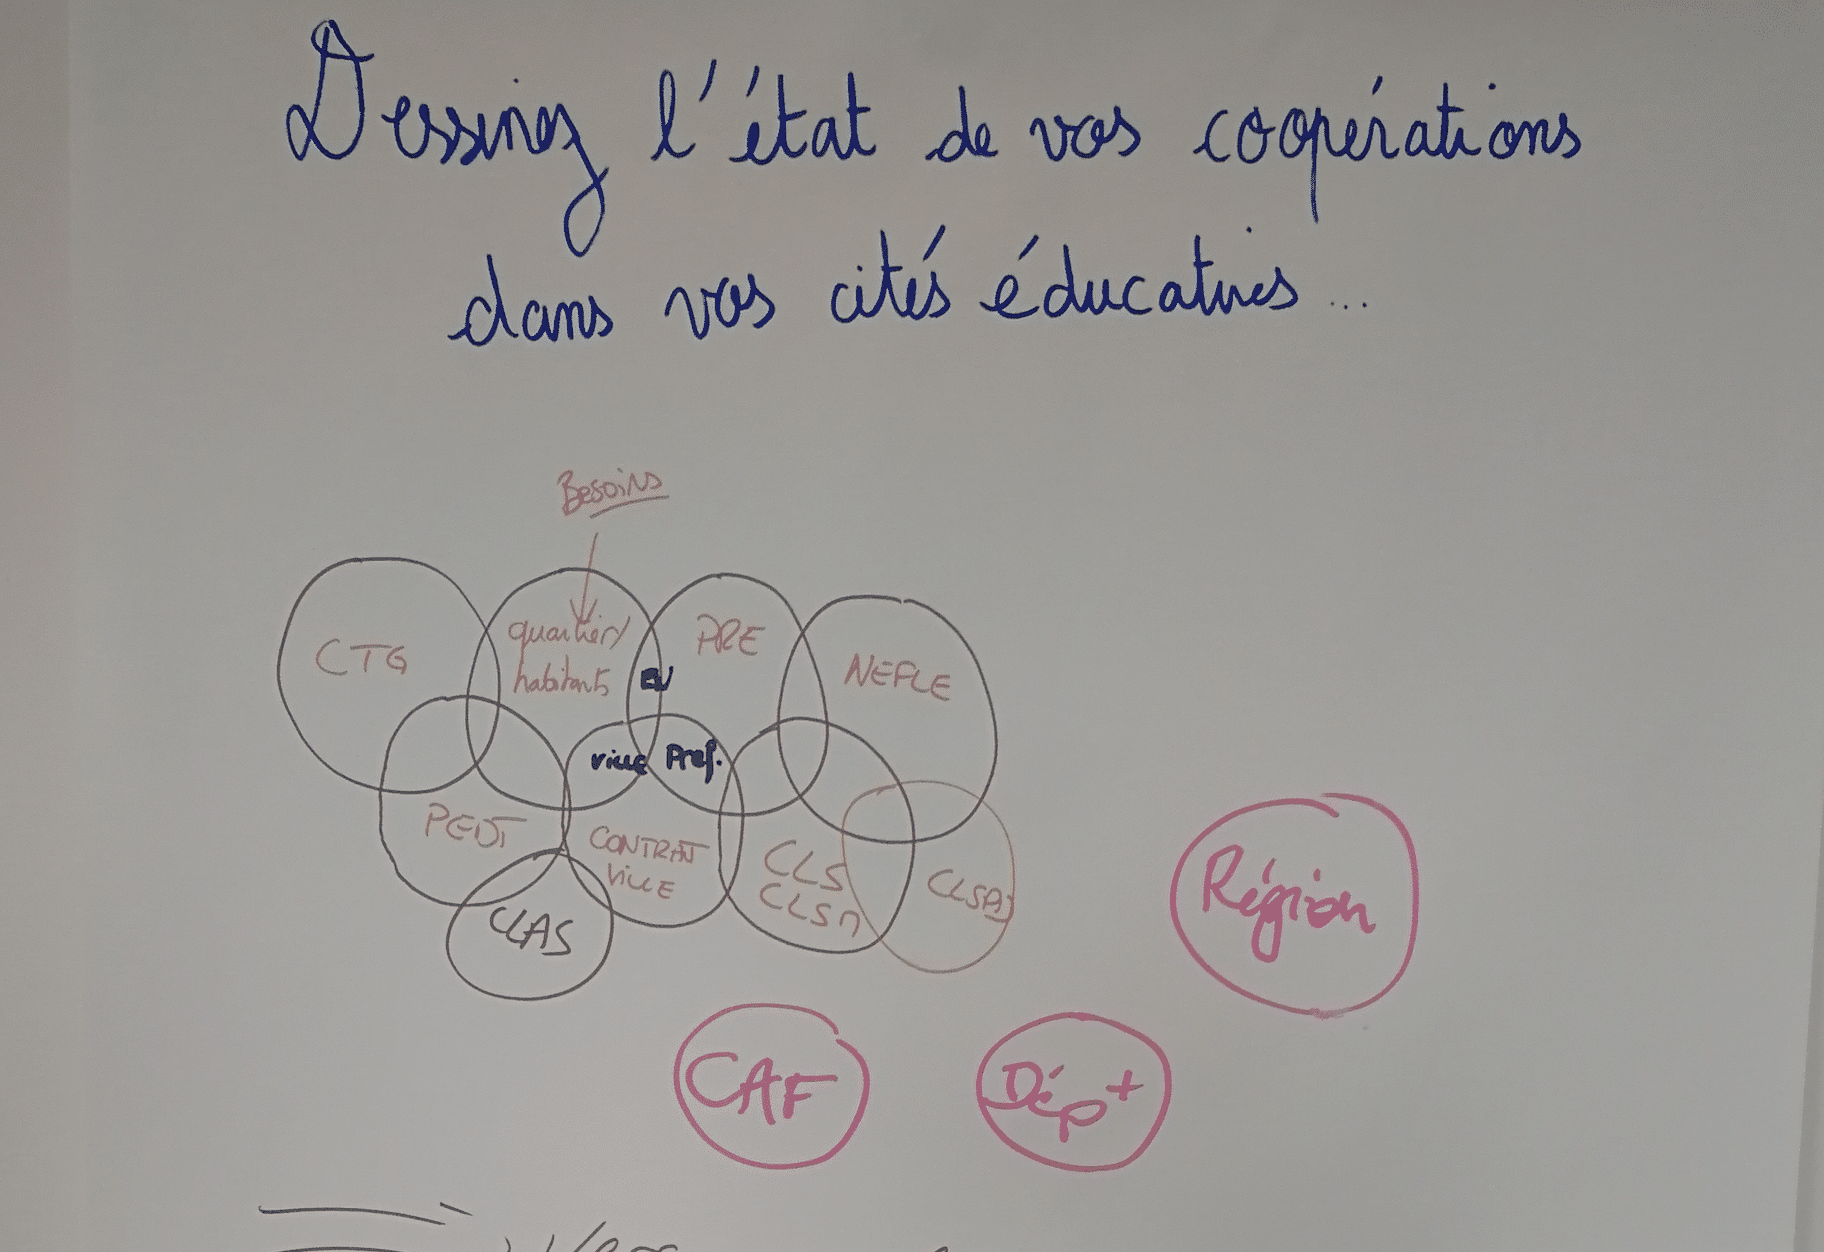 Dessinez l'état de vos coopérations
dans vos cités éducatives...
Besoins
CTG
quartier/
habitants
PRE
NEFLE
ville
Pref.
PEDT
CONTRAT
VILLE
CLS
CLSM
CLAS
Région
CAF
Dép+